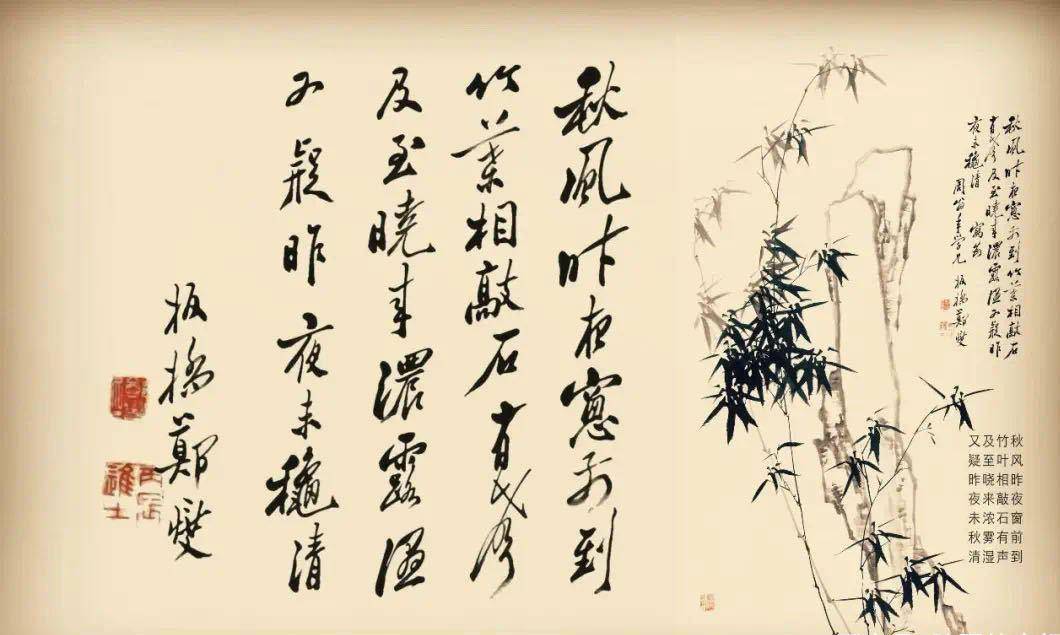 秋風昨夜窓前到
竹葉相敲石有聲
及至曉来濃露湿
又疑昨夜未穐清
板橋鄭燮
丙辰進士
秋風昨夜窓前到竹葉相敲石
有聲及至曉来濃露湿又疑昨
夜未穐清
年学兄 板橋鄭燮
秋风昨夜窗前到
竹叶相敲石有声
及至晓来浓雾湿
又疑昨夜未秋清